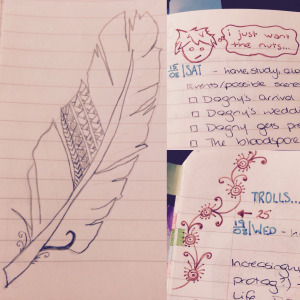 i just want
the nuts...
15/08 | SAT - home, study,
events/possible scenes
□ Dagny's arrival
□ Dagny's wedd
□ Dagny gets pre
□ The bloodspor
TROLLS...
25
19/08 | WED - h
Increasing
protag?) -
Life